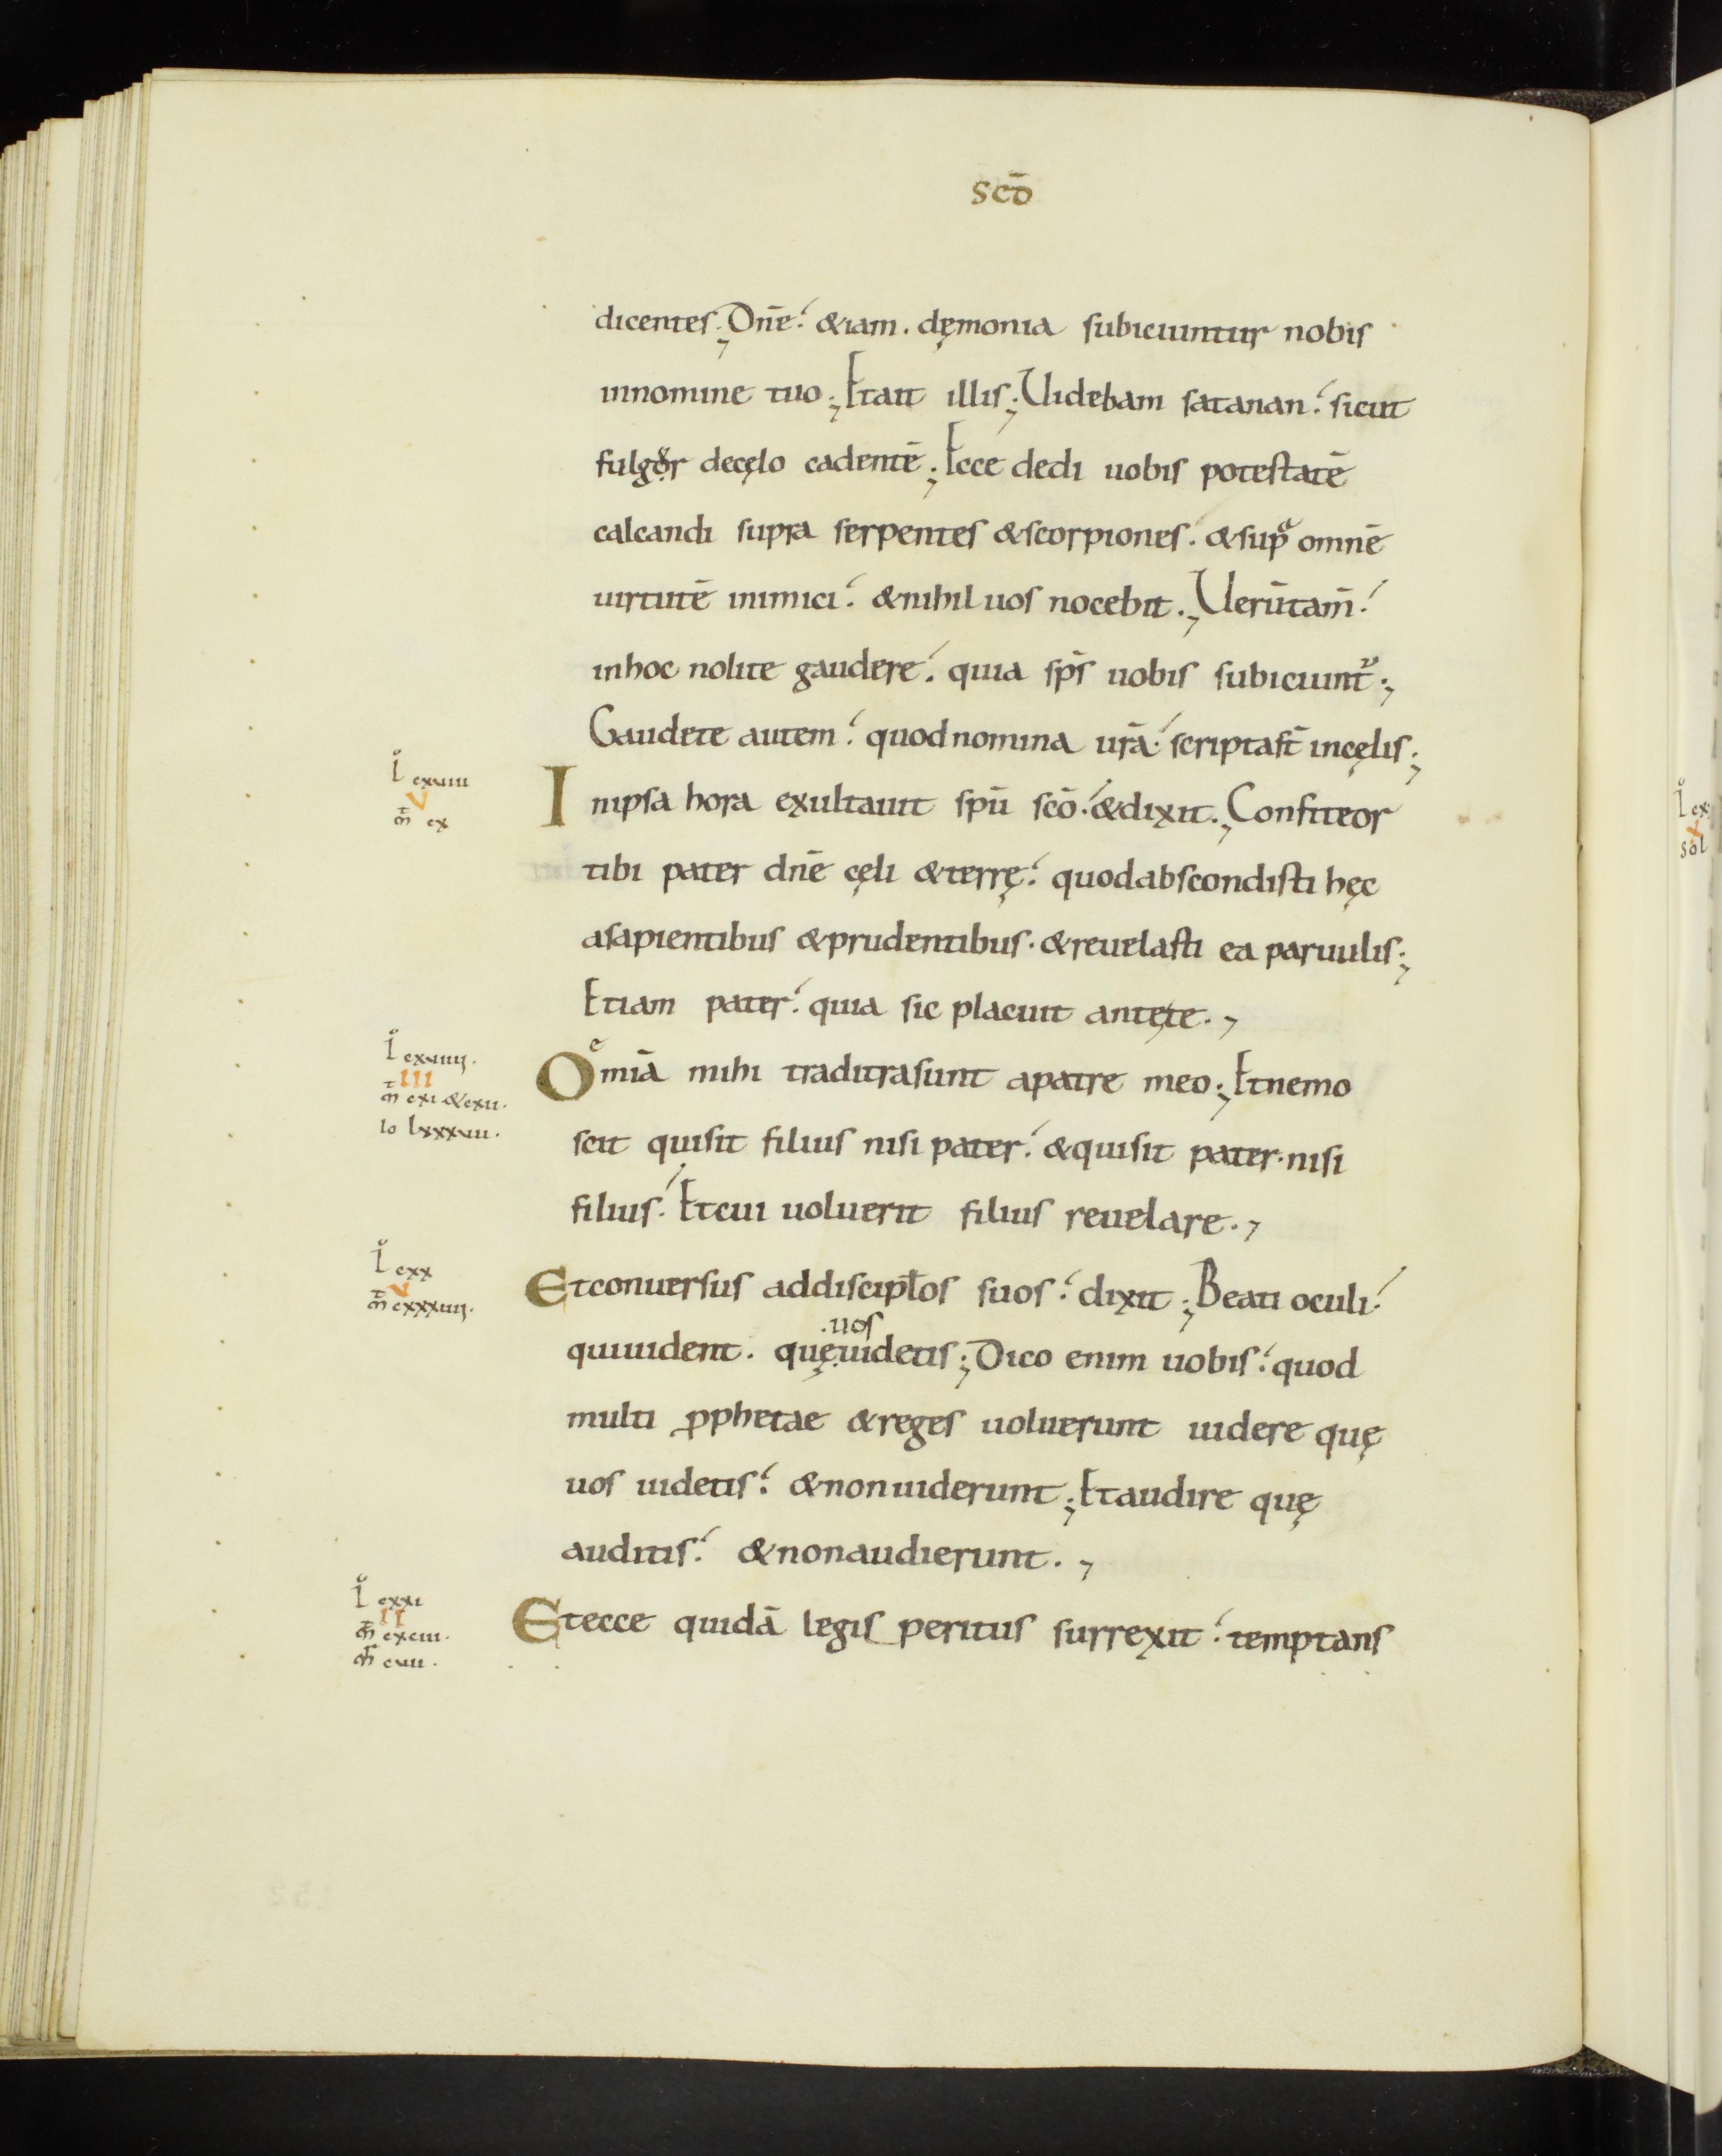 scō
dicentes; Dn̄e: &iam. dęmonia subiciuntur nobis
innomine tuo; Etait illis; Uidebam satanan: sicut
fulgor decęlo cadentē; Ecce dedi uobis potestatē
calcandi supra serpentes &scorpiones. &supͣ omnē
uirtutē inimici: &nihil uos nocebit; Uerūtam̄:
inhoc nolite gaudere: quia sp̄s uobis subiciunt᷑;
Gaudete autem: quodnomina ur̄a: scriptas̄t incęlis;
l͛ cxuiiii
V
m̄ cx
Inipsa hora exultauit sp̄u scō: &dixit; Confiteor
tibi pater dn̄e cęli &terrę: quodabscondisti hęc
asapientibus &prudentibus. &reuelasti ea paruulis;
Etiam pater: quia sic placuit antęte.,
l͛ cxuiiii.
III
m̄ cxi &cxii.
io lxxxuii.
Omͤiā mihi traditasunt apatre meo; Etnemo
scit quisit filius nisi pater: &quisit pater. nisi
filius: Etcui uoluerit filius reuelare.,
l͛ cxx
V
m̄ cxxxiiii.
Etconuersus addiscipłos suos: dixit; Beati oculi:
quiuident. quę.uos uidetis; Dico enim uobis: quod
multi ꝓphetae &reges uoluerunt uidere quę
uos uidetis: &nonuiderunt; Etaudire quę
auditis: &nonaudierunt.,
l͛ cxxi
II
m̄ cxciii.
m͛ cuii.
Etecce quidā legis peritus surrexit: temptans